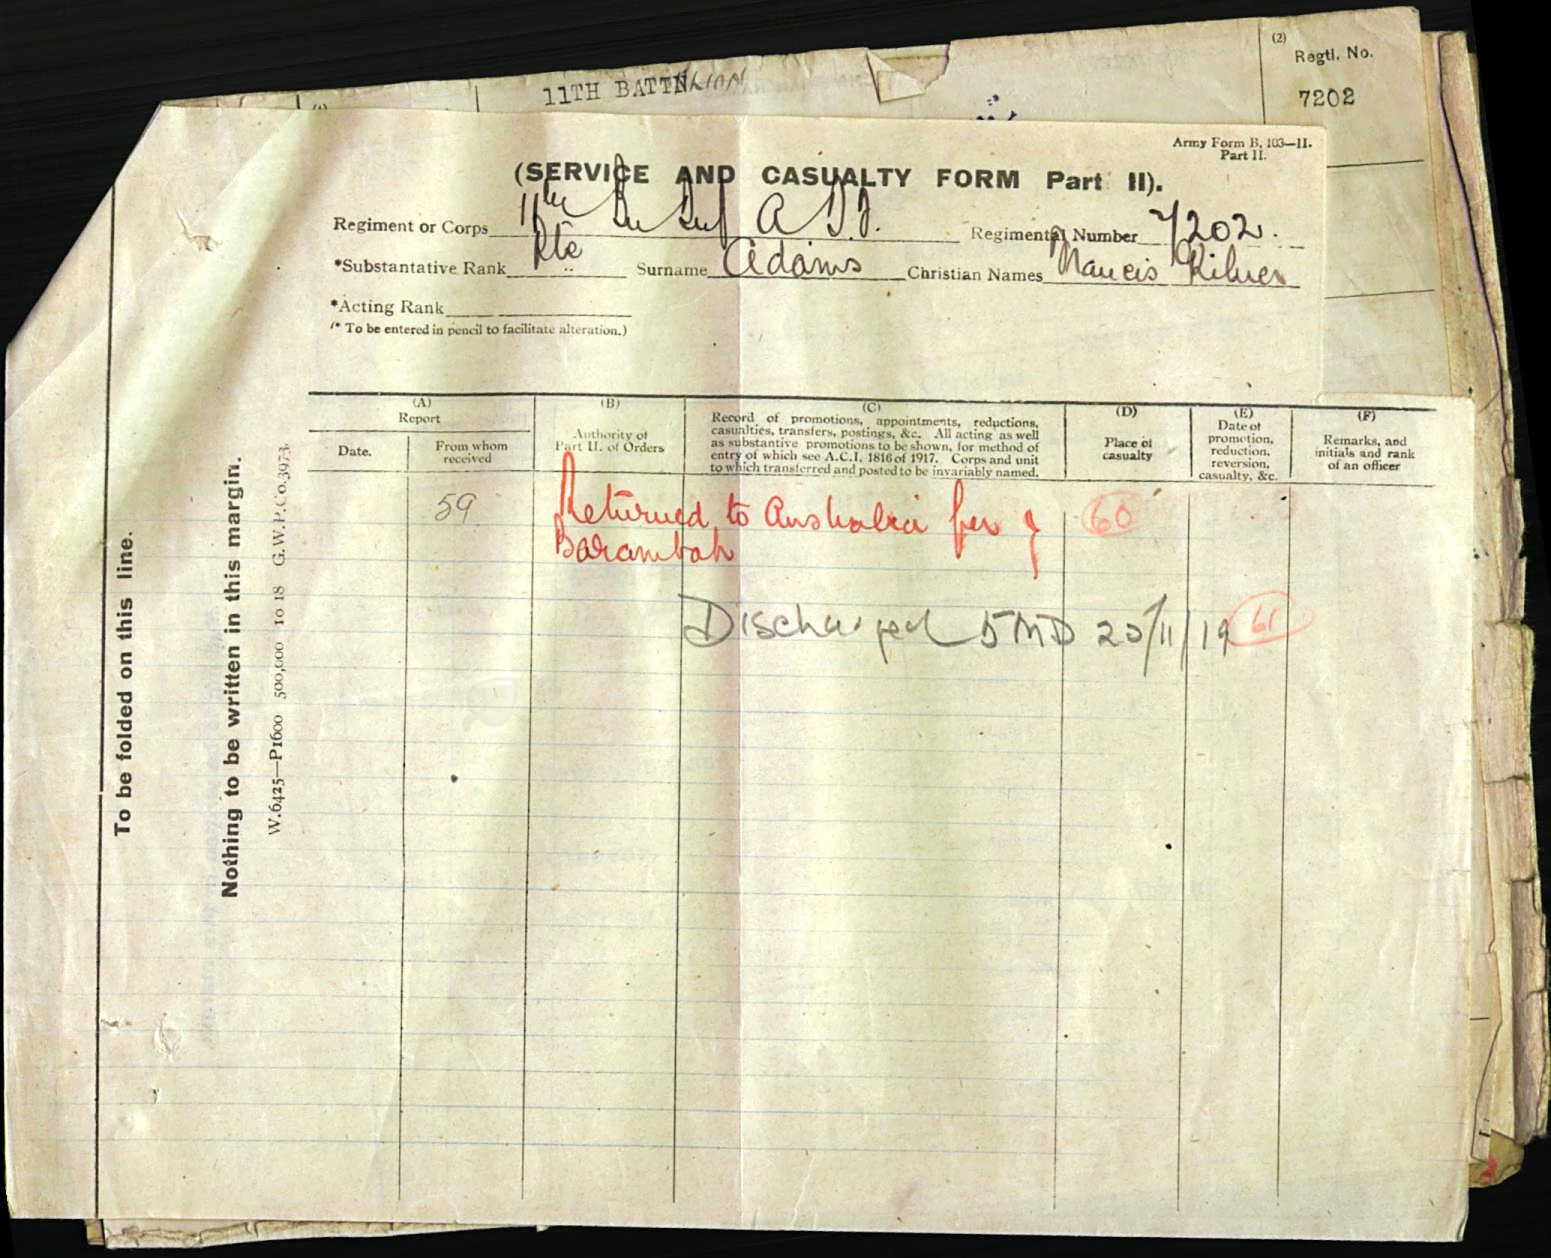 11TH BATTN
(2)
Regtl. No.
7202
Army Form B. 103—II.
Part II.
(SERVICE AND CASUALTY FORM Part II).
Regiment or Corps 11th Bn Regimental Number 7202.
*Substantative Rank Pte Surname Adams Christian Names Francis Kilner
*Acting Rank
(* To be entered in pencil to facilitate alteration.)
(A)
Report
Date.
From whom
received
(B)
Authority of
Part II. of Orders
(C)
Record of promotions, appointments, reductions,
casualties, transfers, postings, &c. All acting as well
as substantive promotions to be shown, for method of
entry of which see A.C.I. 1816 of 1917. Corps and unit
to which transferred and posted to be invariably named.
(D)
Place of
casualty
(E)
Date of
promotion,
reduction,
reversion,
casualty, &c.
(F)
Remarks, and
initials and rank
of an officer
59 Returned to Australia per 60
Barambah
Discharged 5MD 25/11/19 61
To be folded on this line.
Nothing to be written in this margin.
W.6425—P1600 500,000 10 18 G.W.P.Co.3973.